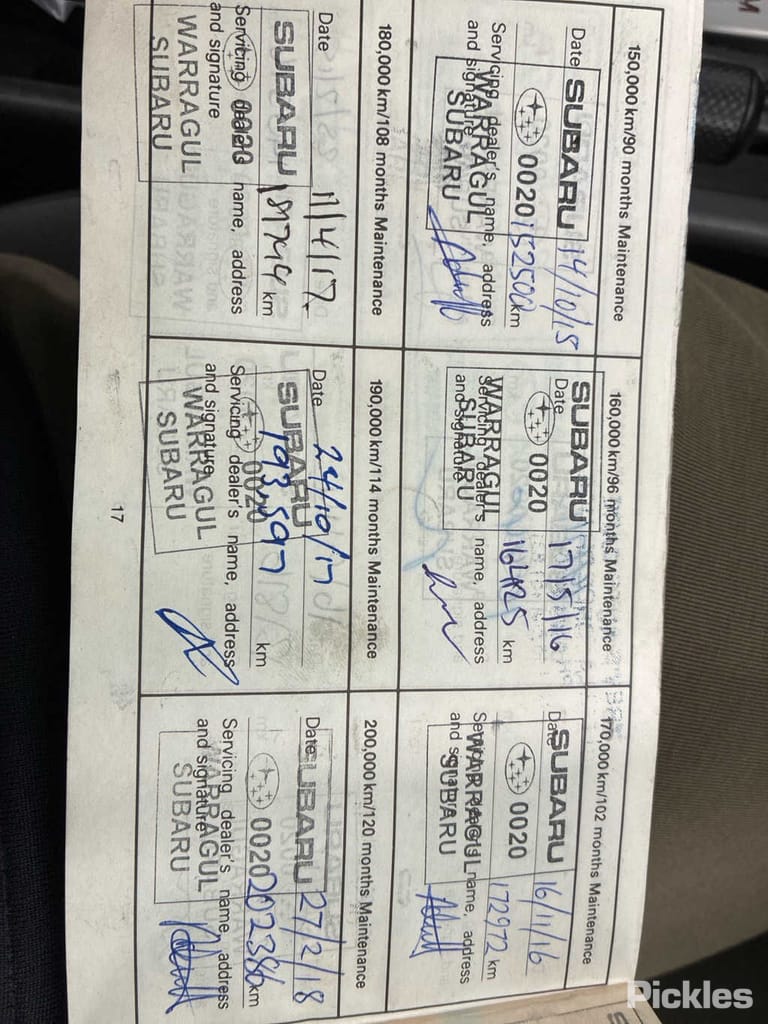 150,000 km/90 months Maintenance
SUBARU
Date 14/10/15
0020 152500 km
Servicing dealer's name, address
and signature
WARRAGUL
SUBARU
160,000 km/96 months Maintenance
SUBARU
Date 17/5/16
0020 164125 km
Servicing dealer's name, address
and signature
WARRAGUL
SUBARU
170,000 km/102 months Maintenance
SUBARU
Date 16/11/16
0020 172972 km
Servicing dealer's name, address
and signature
WARRAGUL
SUBARU
180,000 km/108 months Maintenance
Date 11/4/17
SUBARU
181744 km
0020
Servicing dealer's name, address
and signature
WARRAGUL
SUBARU
190,000 km/114 months Maintenance
Date 24/10/17
SUBARU
193,597 km
0020
Servicing dealer's name, address
and signature
WARRAGUL
SUBARU
200,000 km/120 months Maintenance
Date 27/2/18
SUBARU
0020 202386 km
Servicing dealer's name, address
and signature
WARRAGUL
SUBARU
17
Pickles